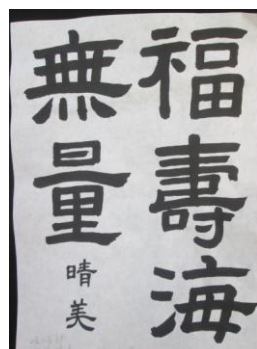 福壽海
無量
晴美